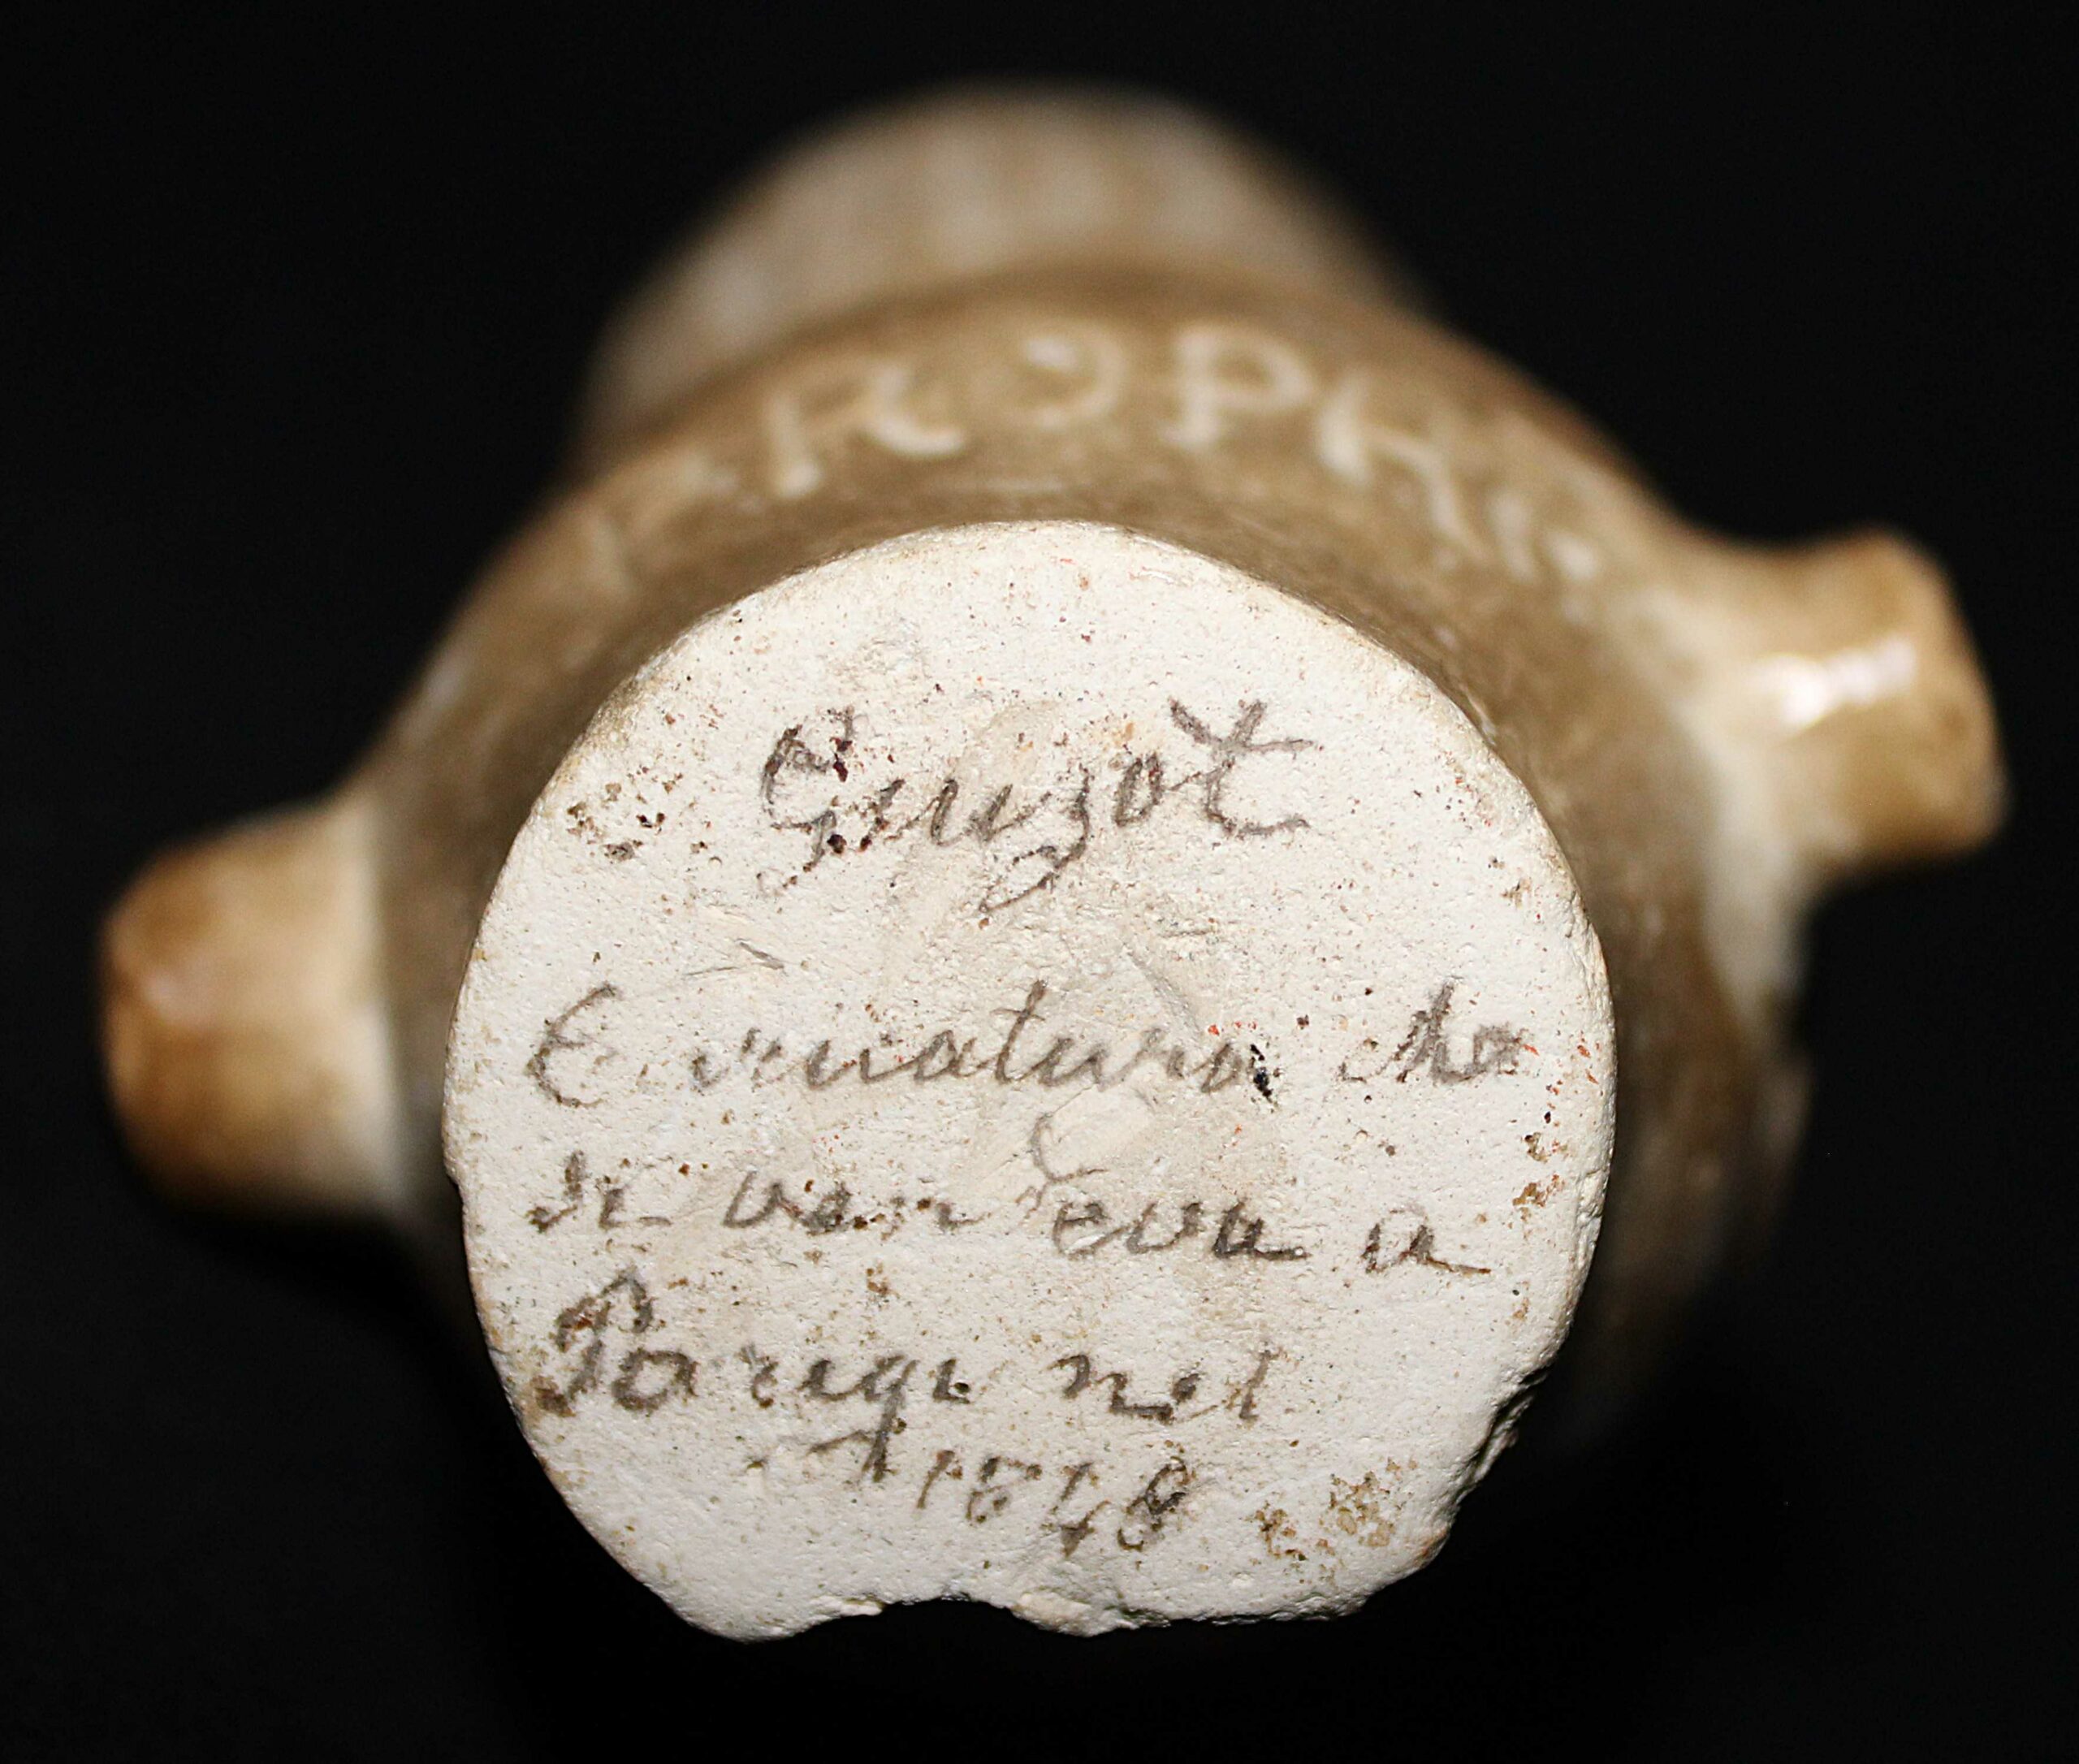 ROPH
Guizot
E. miniatura che
si vendeva a
Parigi nel
1848